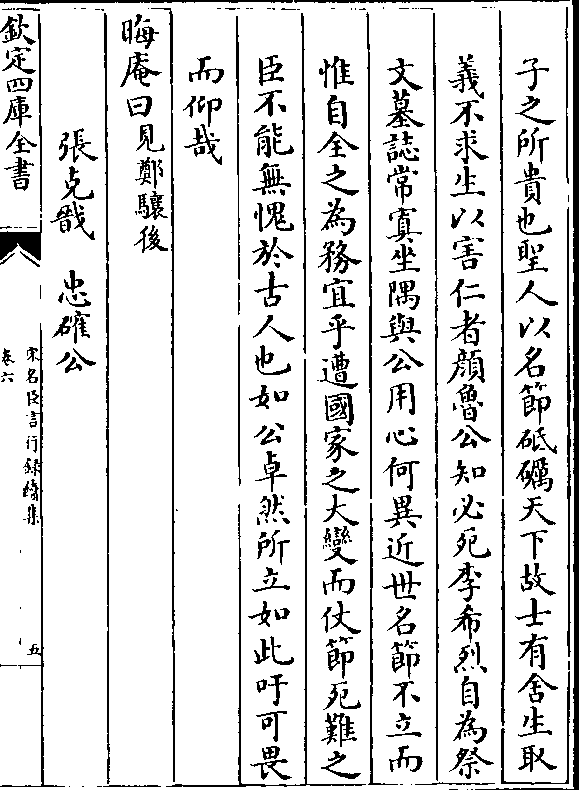 子之所貴也聖人以名節砥礪天下故士有舍生取
義不求生以害仁者顔魯公知必死李希烈自為祭
文墓誌常寘坐隅與公用心何異近世名節不立而
惟自全之為務宜乎遭國家之大變而仗節死難之
臣不能無愧於古人也如公卓然所立如此吁可畏
而仰哉
晦庵曰見鄭驤後
張克戩　忠確公
欽定四庫全書
宋名臣言行録續集
卷六
五